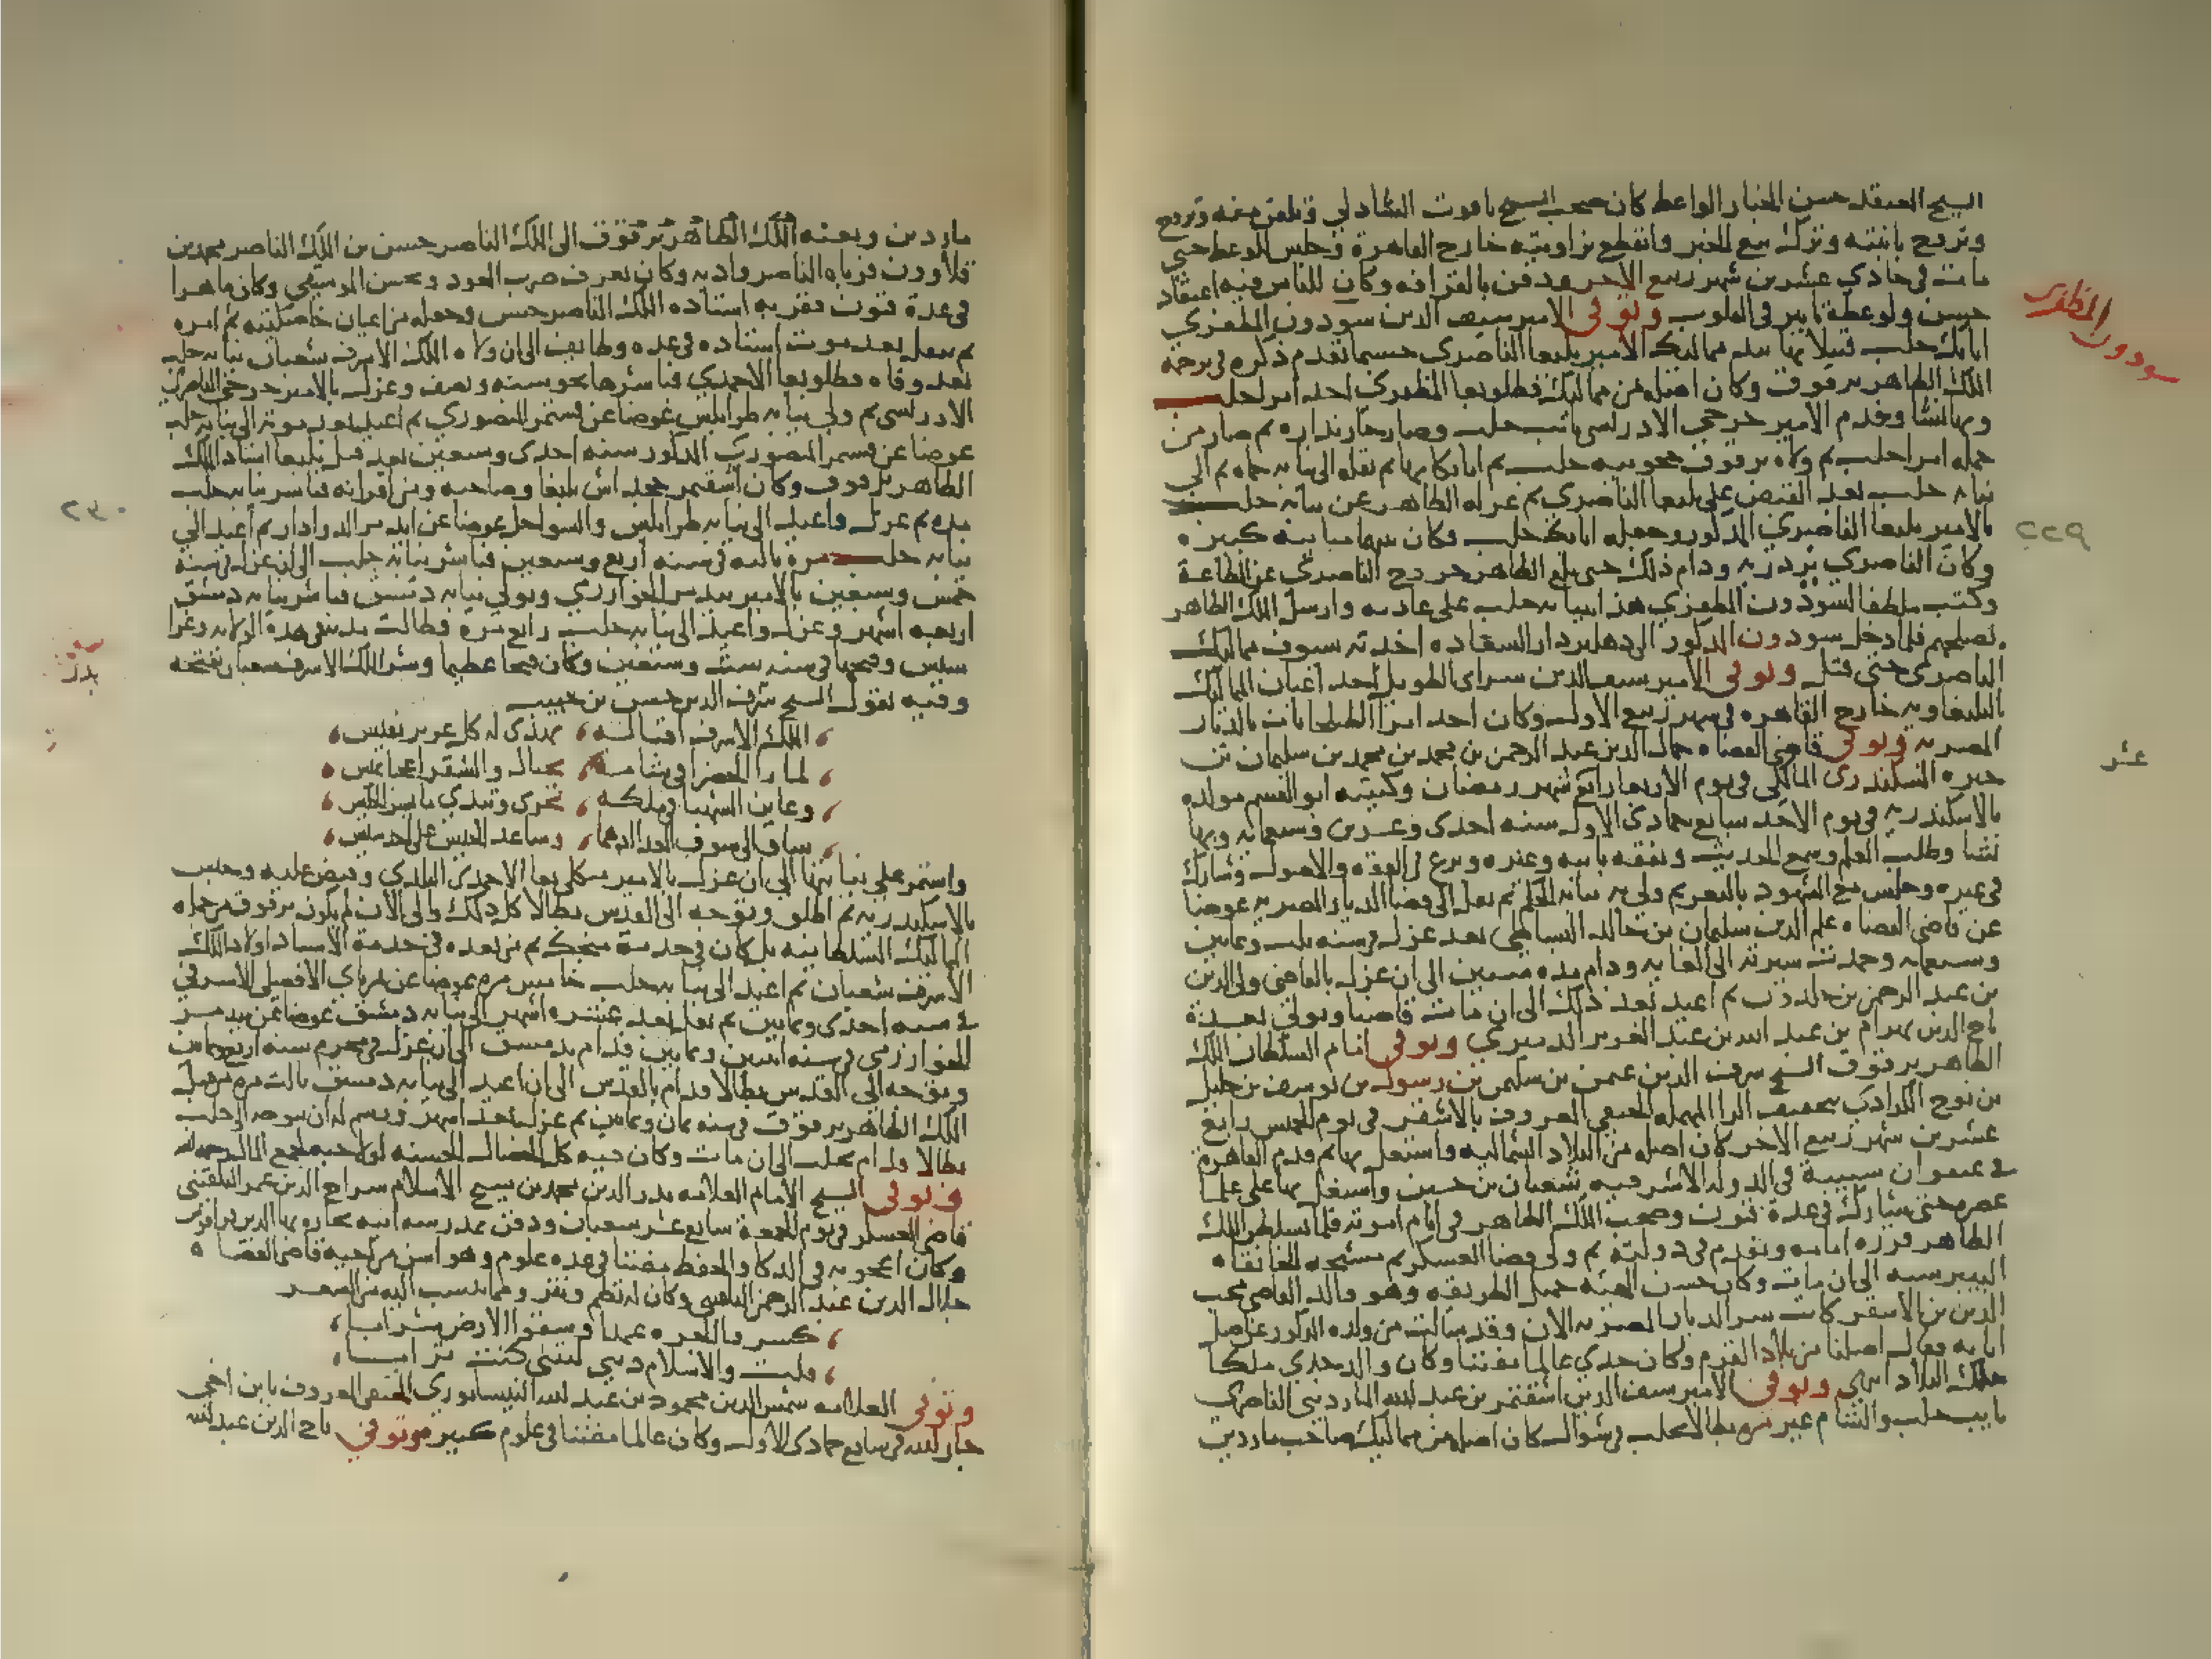 الشيخ المعتقد حسن الخباز الواعظ كان صحب الشيخ ياقوت الشادلي وتلقن منه وتزوج
وتزوج بابنته وترك بيع الخبز وانقطع بزاويته خارج القاهرة وجلس للوعظ حتى
مات في حادي عشرين شهر ربيع الآخر ودفن بالقرافه وكان للناس فيه اعتقاد
حسن ولوعظه تاثير في القلوب وتوفى الامير سيف الدين سودون المظفري
اتابك حلب قتيلا بها بيد مماليك الامير يلبغا الناصري حسبما تقدم ذكره في ترجمة
الملك الظاهر برقوق وكان اصله من مماليك قطلوبغا المظفرى احد امرا حلب
وبها نشا وخدم الامير جرجي الادريسي نائب حلب وصار خازنداره ثم صار من
جمله امرا حلب ثم ولاه برقوق حجوبيه حلب ثم اتابكا بها ثم نقله الى نيابه حماه ثم الى
نيابه حلب بعد القبض على يلبغا الناصري ثم عزله الظاهر عن نيابه حلب
بالامير يلبغا الناصري المذكور وجعله اتابك حلب وكان بينهما مباينه كبيره
وكان الناصرى يزدريه ودام ذلك حتى بلغ الظاهر خروج الناصري عن الطاعة
وكتب ملطفا لسودون المظفري هذا بنيابه حلب على عادته وارسل الملك الظاهر
يصلحهم فلما دخل سودون المذكور الى دهليز دار السعاده اخذته سيوف مماليك
الناصرى حتى قتل وتوفى الامير سيف الدين سراى الطويل احد اعيان المماليك
اليلبغاويه خارج القاهره في شهر ربيع الاول وكان احد امرا الطبلخانات بالديار
المصريه وتوفى قاضي القضاه جمال الدين عبد الرحمن بن محمد بن محمد بن سليمان بن
خيره السكندرى المالكي في يوم الاربعا رابع شهر رمضان وكنيته ابو القسم مولده
بالاسكندريه في يوم الاحد سابع جمادى الاول سنه احدى وعشرين وسبعمايه وبها
نشا وطلب العلم وسمع الحديث وتفقه بابيه وغيره وبرع في الفقه والاصول وشارك
في غيره وجلس مع الشهود بالثغر ثم ولى به نيابه الحكم ثم نقل الى قضا الديار المصريه عوضا
عن قاضي القضاه علم الدين سليمان بن خالد البساطي بعد عزله في سنه ثلث وثمانين
وسبعمايه وحمدت سيرته الى الغايه ودام مده سنين الى ان عزل بالقاضي ولى الدين
بن عبد الرحمن بن خلدون ثم اعيد بعد ذلك الى ان مات قاضيا وتولى بعده
تاج الدين بهرام بن عبد الله بن عبد العزيز الدميري وتوفى امام السلطان الملك
الظاهر برقوق الشيخ شرف الدين عثمن بن سليمن بن رسول بن يوسف بن خليل
بن نوح الكرادي بتخفيف الرا المهمله الحنفي المعروف بالاشقر في يوم الخميس رابع
عشرين شهر ربيع الاخر كان اصله من البلاد الشماليه واشتغل بها ثم قدم القاهرة
في عنفوان شبيبته في الدوله الاشرفيه شعبان بن حسين واشتغل بها على علما
عصره حتى شارك في عدة فنون وصحب الملك الظاهر في ايام امرته فلما تسلطن الملك
الظاهر قرره امامه وتقدم في دولته ثم ولى قضا العسكر ثم مشيخه الخانقاه
البيبرسيه الى ان مات وكان حسن الهيئه جميل الطريقه وهو والد القاضي محب
الدين بن الاشقر كاتب سر الديار المصريه الان وقد سالت من ولده المذكور عن اصل
ابايه فقال اصلنا من بلاد القرم وكان جدي عالما مفننا وكان والد جدي ملكا
بتلك البلاد انتهى وتوفى الامير سيف الدين اشقتمر بن عبد الله المارديني الناصرى
نايب حلب والشام غير مره بطالا بحلب في شوال كان اصله من مماليك صاحب ماردين
سودون المظفرى
٢٢٩
عشر
ماردين وبعثه الملك الظاهر برقوق الى الملك الناصر حسن بن الملك الناصر محمد بن
قلاوون فرباه الناصر وادبه وكان يعرف ضرب العود ويحسن الموسيقى وكان ماهرا
في عدة فنون فقربه استاذه الملك الناصر حسن وجعله من اعيان خاصكيته ثم امره
ثم تنقل بعد موت استاذه في عده وظايف الى ان ولاه الملك الاشرف شعبان نيابه حلب
بعد وفاه قطلوبغا الاحمدي فباشرها نحو سنه ونصف وعزل بالامير جرجي الناصرى
الادريسي ثم ولى نيابه طرابلس عوضا عن قشتمر المنصوري ثم اعيد بعد مدة الى نيابه حلب
عوضا عن قشتمر المنصورى المذكور سنه احدى وسبعين بعد قتل يلبغا استاذ الملك
الظاهر برقوق وكان اشقتمر خجداش يلبغا وصاحبه ومن اقرانه فباشر نيابه حلب
مده ثم عزل واعيد الى نيابه طرابلس والسواحل عوضا عن ايدمر الدوادار ثم اعيد الى
نيابه حلب مرة ثالثه في سنه اربع وسبعين فباشر نيابه حلب الى ان عزل في سنه
خمس وسبعين بالامير بيدمر الخوارزمي وتولى نيابه دمشق فباشر نيابه دمشق
اربعه اشهر وعزل واعيد الى نيابه حلب رابع مرة فطالت مدته في هذه الولايه وغزا
سيس وفتحها في سنه ست وسبعين وكان فتحا عظيما وسر الملك الاشرف شعبان بفتحه
وفيه يقول الشيخ شرف الدين حسن بن حبيب
الملك الاشرف اقباله يهدى له كل عزيز نفيس
لما راى الخضرا في شامه تختال والشقرا عجبا تميس
وعاين الشهبا في ملكه تجرى وتبدي ما يسر الجليس
ساق الى سوق العدا ادهما وساعد الجيش على اخذ سيس
واستمر على نيابتها الى ان عزل بالامير منكلى بغا الاحمدى البلدي وقبض عليه وحبس
بالاسكندريه ثم اطلق وتوجه الى القدس بطالا كل ذلك والى الان لم يكون برقوق من جمله
المماليك السلطانيه بل كان في خدمة منجك ثم من بعده في خدمة الاسياد اولاد الملك
الاشرف شعبان ثم اعيد الى نيابه حلب خامس مره عوضا عن تمرباي الافضلي الاشرفي
في سنه احدى وثمانين ثم نقل بعد عشره اشهر الى نيابه دمشق عوضا عن بيدمر
الخوارزمى في سنه اثنين وثمانين فدام بدمشق الى ان عزل في محرم سنه اربع وثمانين
وتوجه الى القدس بطالا فدام بالقدس الى ان اعيد الى نيابه دمشق ثالث مره من قبل
الملك الظاهر برقوق في سنه ثمان وثمانين ثم عزل بعد اشهر ورسم له ان يتوجه الى حلب
بطالا فدام بحلب الى ان مات وكان فيه كل الخصال الحسنه لولا حبه لجمع المال رحمه الله
وتوفى الشيخ الامام العلامه بدر الدين محمد بن شيخ الاسلام سراج الدين عمر البلقيني
قاضي العسكر في يوم الجمعة سابع عشر شعبان ودفن بمدرسه ابيه بحاره بها الدين قراقوش
وكان اعجوبه في الذكا والحفظ مفننا في عده علوم وهو اسن من اخيه قاضي القضاه
جلال الدين عبد الرحمن البلقيني وكان له نظم ونثر ومما ينسب اليه من الشعر
كسروا الجره عمدا وسقوا الارض شرابا
قلت والاسلام ديني ليتني كنت ترابا
وتوفى العلامه شمس الدين محمود بن عبد الله النيسابوري الحنفي المعروف بابن اخي
جار الله في سابع جمادى الاول وكان عالما مفننا في علوم كثيره وتوفى تاج الدين عبد الله
٢٣٠